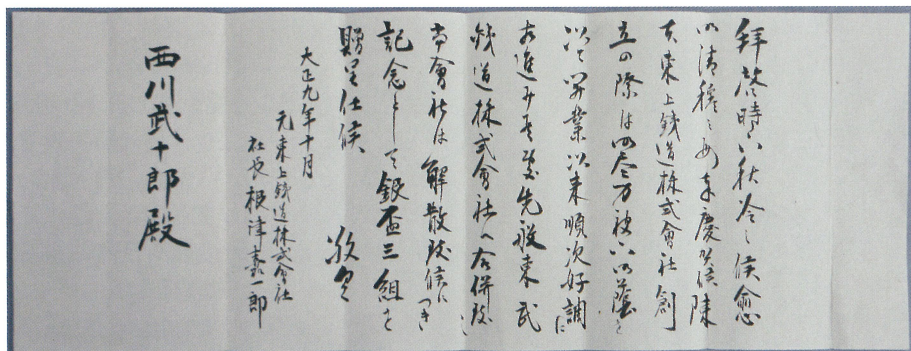 拝啓時下秋冷之候愈
御清穆之段奉慶賀候陳
者東上鉄道株式會社創
立の際は御尽力被下御蔭を
以て開業以来順次好調に
相進み居候処先般東武
鉄道株式會社へ合併致し
本會社は解散致候に付き
記念として銀盃三組を
贈呈仕候 敬具
大正九年十月
元東上鉄道株式會社
社長根津嘉一郎
西川武十郎殿